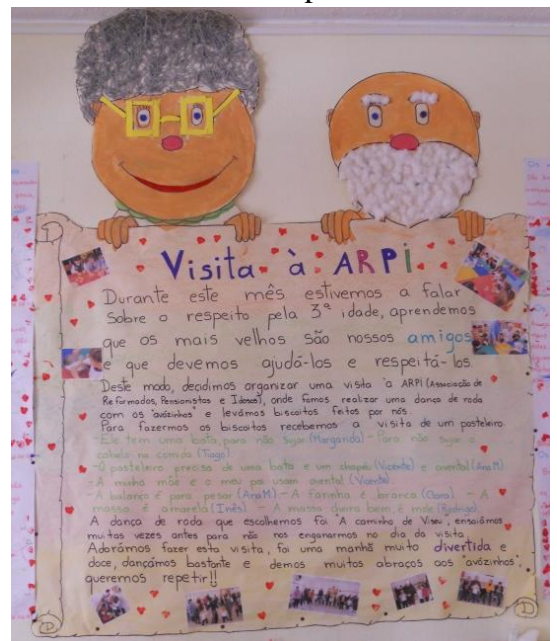 Visita à ARPI
Durante este mês estivemos a falar
Sobre o respeito pela 3ª idade, aprendemos
que os mais velhos são nossos amigos
e que devemos ajudá-los e respeitá-los.
Deste modo, decidimos organizar uma visita à ARPI (Associação de
Reformados, Pensionistas e Idosos), onde fomos realizar uma dança de roda
com os "avózinhos" e levámos biscoitos feitos por nós.
Para fazermos os biscoitos recebemos a visita de um pasteleiro.
-Ele tem uma bata, para não sujar (Margarida) - Para não sujar o
cabelo na comida (Tiago)
-O pasteleiro precisa de uma bata e um chapéu (Vicente) e avental (Ana M).
-A minha mãe e o meu pai usam avental (Vicente).
-A balança é para pesar (Ana M) - A farinha é branca (Clara) - A
massa é amarela (Inês) - A massa cheira bem, é mole (Rodrigo).
A dança de roda que escolhemos foi "A caminho de Viseu", ensaiámos
muitas vezes antes para não nos enganarmos no dia da visita.
Adorámos fazer esta visita, foi uma manhã muito divertida e
doce, dançámos bastante e demos muitos abraços aos "avózinhos",
queremos repetir!!